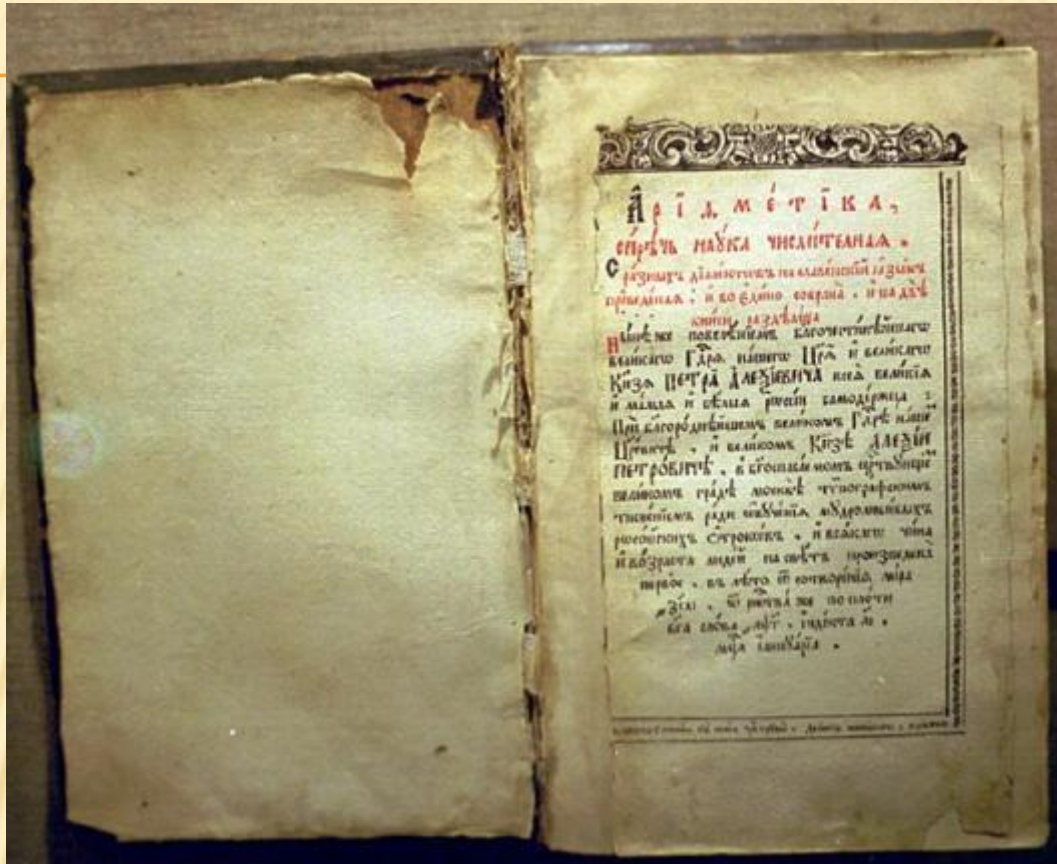 А҆рїѳме́тїка,
си́рѣчь наꙋ́ка числи́телнаѧ.
С ра́зныхъ дїале́ктѡвъ на славе́нскїй ꙗ҆зы́къ
преведе́наѧ, и҆ во є҆ди́но собрана̀, и҆ на двѣ̀
кни́ги раздѣлена̀
Ны́нѣ же повелѣ́нїемъ благочести́вѣйшагѡ
вели́кагѡ Гдⷭ҇рѧ на́шегѡ Цр҃ѧ̀ и҆ вели́кагѡ
Кнѧ҃зѧ ПЕТРА̀ А҆ЛЕѮІ́ЕВИЧА всеѧ̀ вели́кїѧ
и҆ ма́лыѧ и҆ бѣ́лыѧ рѡссі́и самоде́ржца:
При бл҃горо́днѣйшемъ вели́комъ Гдⷭ҇рѣ на́шемъ
Цр҃е́вичѣ, и҆ вели́комъ Кнѧ҃зѣ А҆ЛЕѮІ́И
ПЕТРО́ВИЧѢ, в бг҃оспаса́емомъ
вели́комъ гра́дѣ москвѣ̀ тѵпогра́фскимъ
тисне́нїемъ ра́ди ѡ҆бꙋче́нїѧ мꙋдролюби́выхъ
рѡссі́йскихъ ѻ҆́трокѡвъ, и҆ всѧ́кагѡ чи́на
и҆ во́зраста люде́й на свѣ́тъ произведена̀
пе́рвое, въ лѣ́то ѿ сотворе́нїѧ мі́ра
ѿ рⷤтва̀ же по пло́ти
бг҃а сло́ва і҆ндї́кта
мцⷭ҇а і҆аннꙋа́рїа.